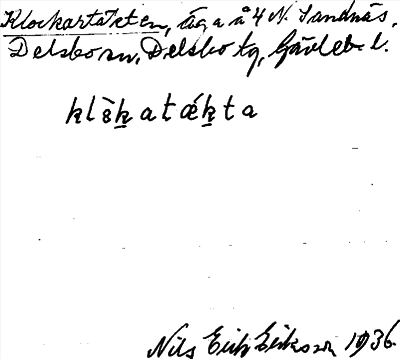 Klockartäkten, äga å 4 N. Sandnäs,
Delsbo sn, Delsbo tg, Gävleb. l.
klɞ̀ḵatǽḵta
Nils Erik Eriksson 1936.